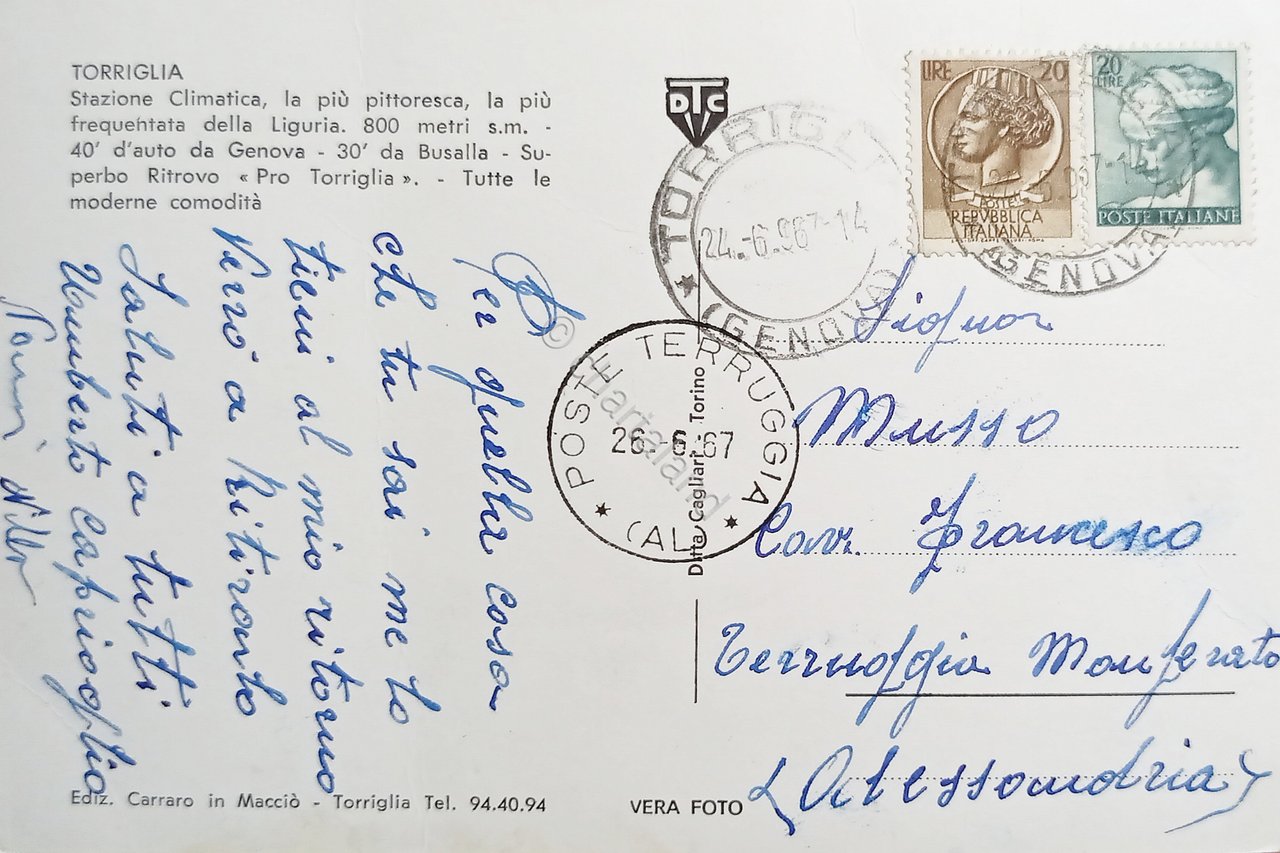 TORRIGLIA
Stazione Climatica, la più pittoresca, la più
frequentata della Liguria. 800 metri s.m. -
40' d'auto da Genova - 30' da Busalla - Su-
perbo Ritrovo « Pro Torriglia ». - Tutte le
moderne comodità
DTC
TORRIGLIA
24.-6.967-14
(GENOVA)
LIRE 20
POSTE
REPVBBLICA
ITALIANA
20
LIRE
POSTE ITALIANE
GENOVA
POSTE TERRUGGIA
26-6-67
(AL)
© Hartaland
Ditta Cagliari - Torino
Per quella cosa
che tu sai me lo
tieni al mio ritorno
Verrò a Ritirarlo
Saluti a tutti
Umberto Caprioglio
Signor
Musso
Cav. Francesco
Terruggia Monferrato
(Alessandria)
Ediz. Carraro in Macciò - Torriglia Tel. 94.40.94
VERA FOTO